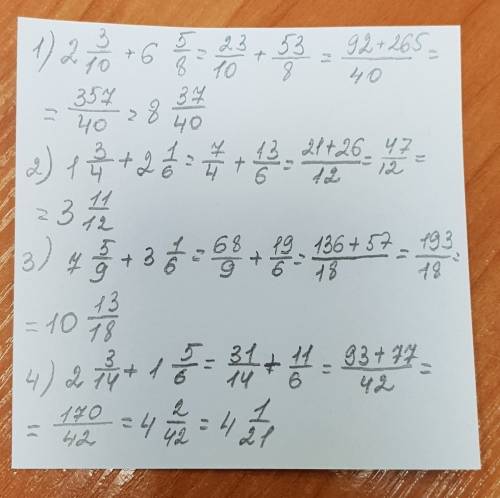 1) 2 3/10 + 6 5/8 = 23/10 + 53/8 = 92+265/40 =
= 357/40 = 8 37/40
2) 1 3/4 + 2 1/6 = 7/4 + 13/6 = 21+26/12 = 47/12 =
= 3 11/12
3) 7 5/9 + 3 1/6 = 68/9 + 19/6 = 136+57/18 = 193/18 =
= 10 13/18
4) 2 3/14 + 1 5/6 = 31/14 + 11/6 = 93+77/42 =
= 170/42 = 4 2/42 = 4 1/21